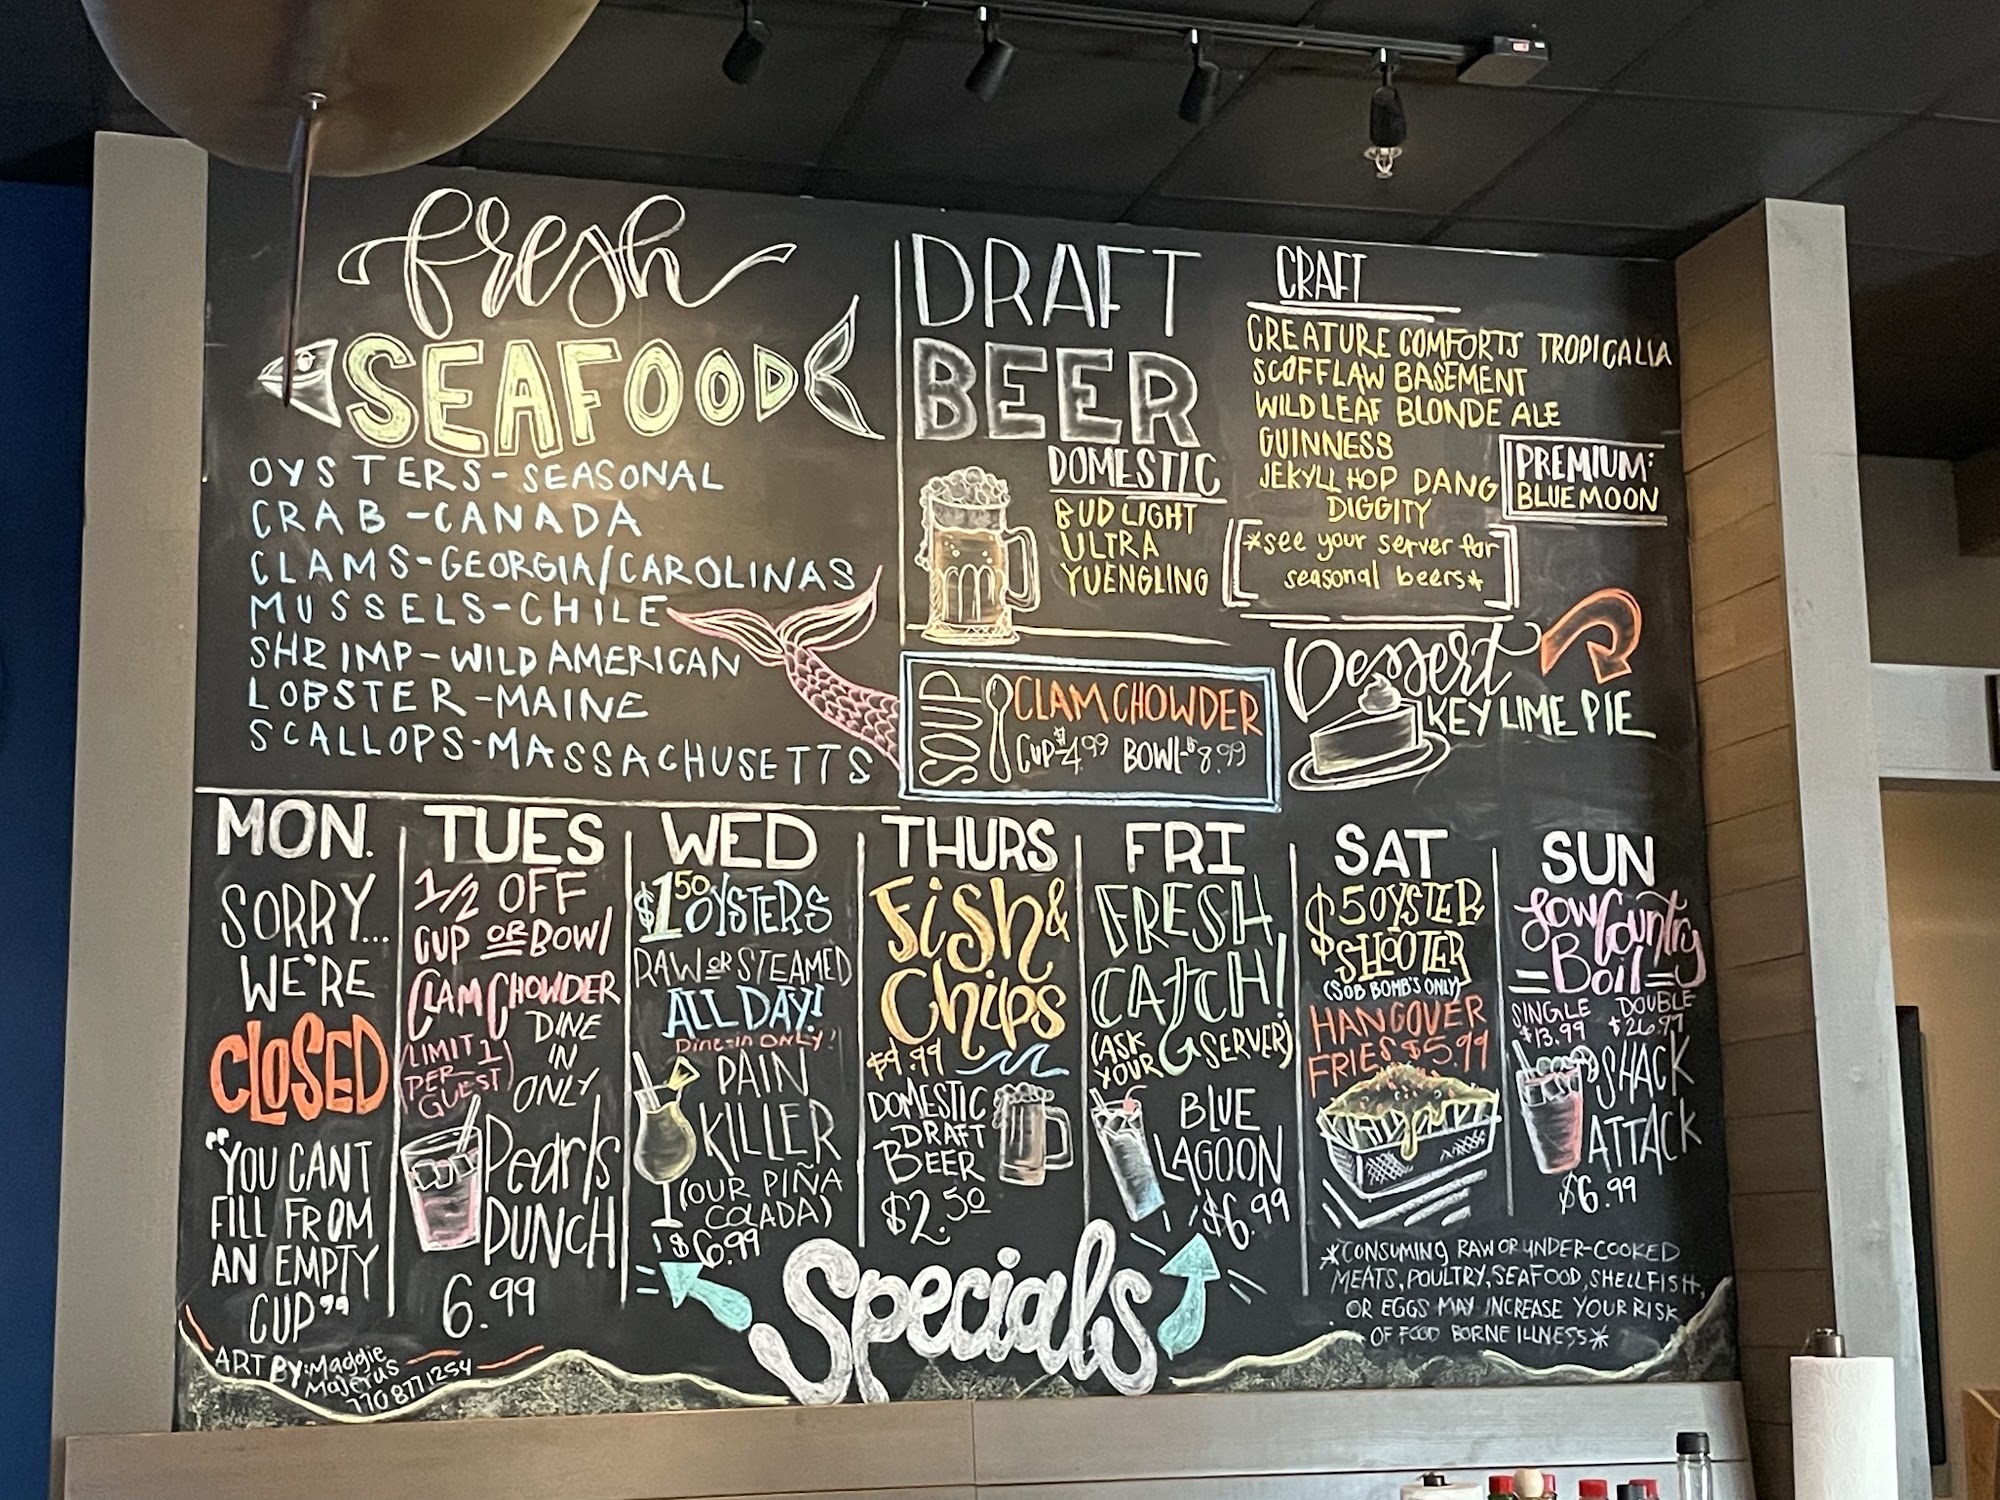 fresh
SEAFOOD
OYSTERS-SEASONAL
CRAB-CANADA
CLAMS-GEORGIA/CAROLINAS
MUSSELS-CHILE
SHRIMP-WILD AMERICAN
LOBSTER-MAINE
SCALLOPS-MASSACHUSETTS
DRAFT
BEER
DOMESTIC
BUD LIGHT
ULTRA
YUENGLING
CRAFT
CREATURE COMFORTS TROPICALIA
SCOFFLAW BASEMENT
WILD LEAF BLONDE ALE
GUINNESS
JEKYLL HOP DANG
DIGGITY
PREMIUM:
BLUE MOON
*see your server for
seasonal beers*
SOUP
CLAM CHOWDER
CUP-$4.99 BOWL-$8.99
Dessert
KEY LIME PIE
MON.
SORRY...
WE'RE
CLOSED
"YOU CANT
FILL FROM
AN EMPTY
CUP"
TUES
1/2 OFF
CUP OR BOWL
CLAM CHOWDER
(LIMIT 1
PER
GUEST)
DINE
IN
ONLY
Pearls
PUNCH
6.99
WED
$1.50 OYSTERS
RAW OR STEAMED
ALL DAY!
Dine-in ONLY!
PAIN
KILLER
(OUR PIÑA
COLADA)
$6.99
THURS
Fish &
Chips
$9.99
DOMESTIC
DRAFT
BEER
$2.50
FRI
FRESH
CATCH!
(ASK
YOUR
SERVER)
BLUE
LAGOON
$6.99
SAT
$5 OYSTER
SHOOTER
(SOB BOMB'S ONLY)
HANGOVER
FRIES $5.99
SUN
Low Country
Boil
SINGLE DOUBLE
$13.99 $26.99
SHACK
ATTACK
$6.99
Specials
*CONSUMING RAW OR UNDER-COOKED
MEATS, POULTRY, SEAFOOD, SHELLFISH,
OR EGGS MAY INCREASE YOUR RISK
OF FOOD BORNE ILLNESS*
ART BY: Maggie
Majerus
770 877.1254